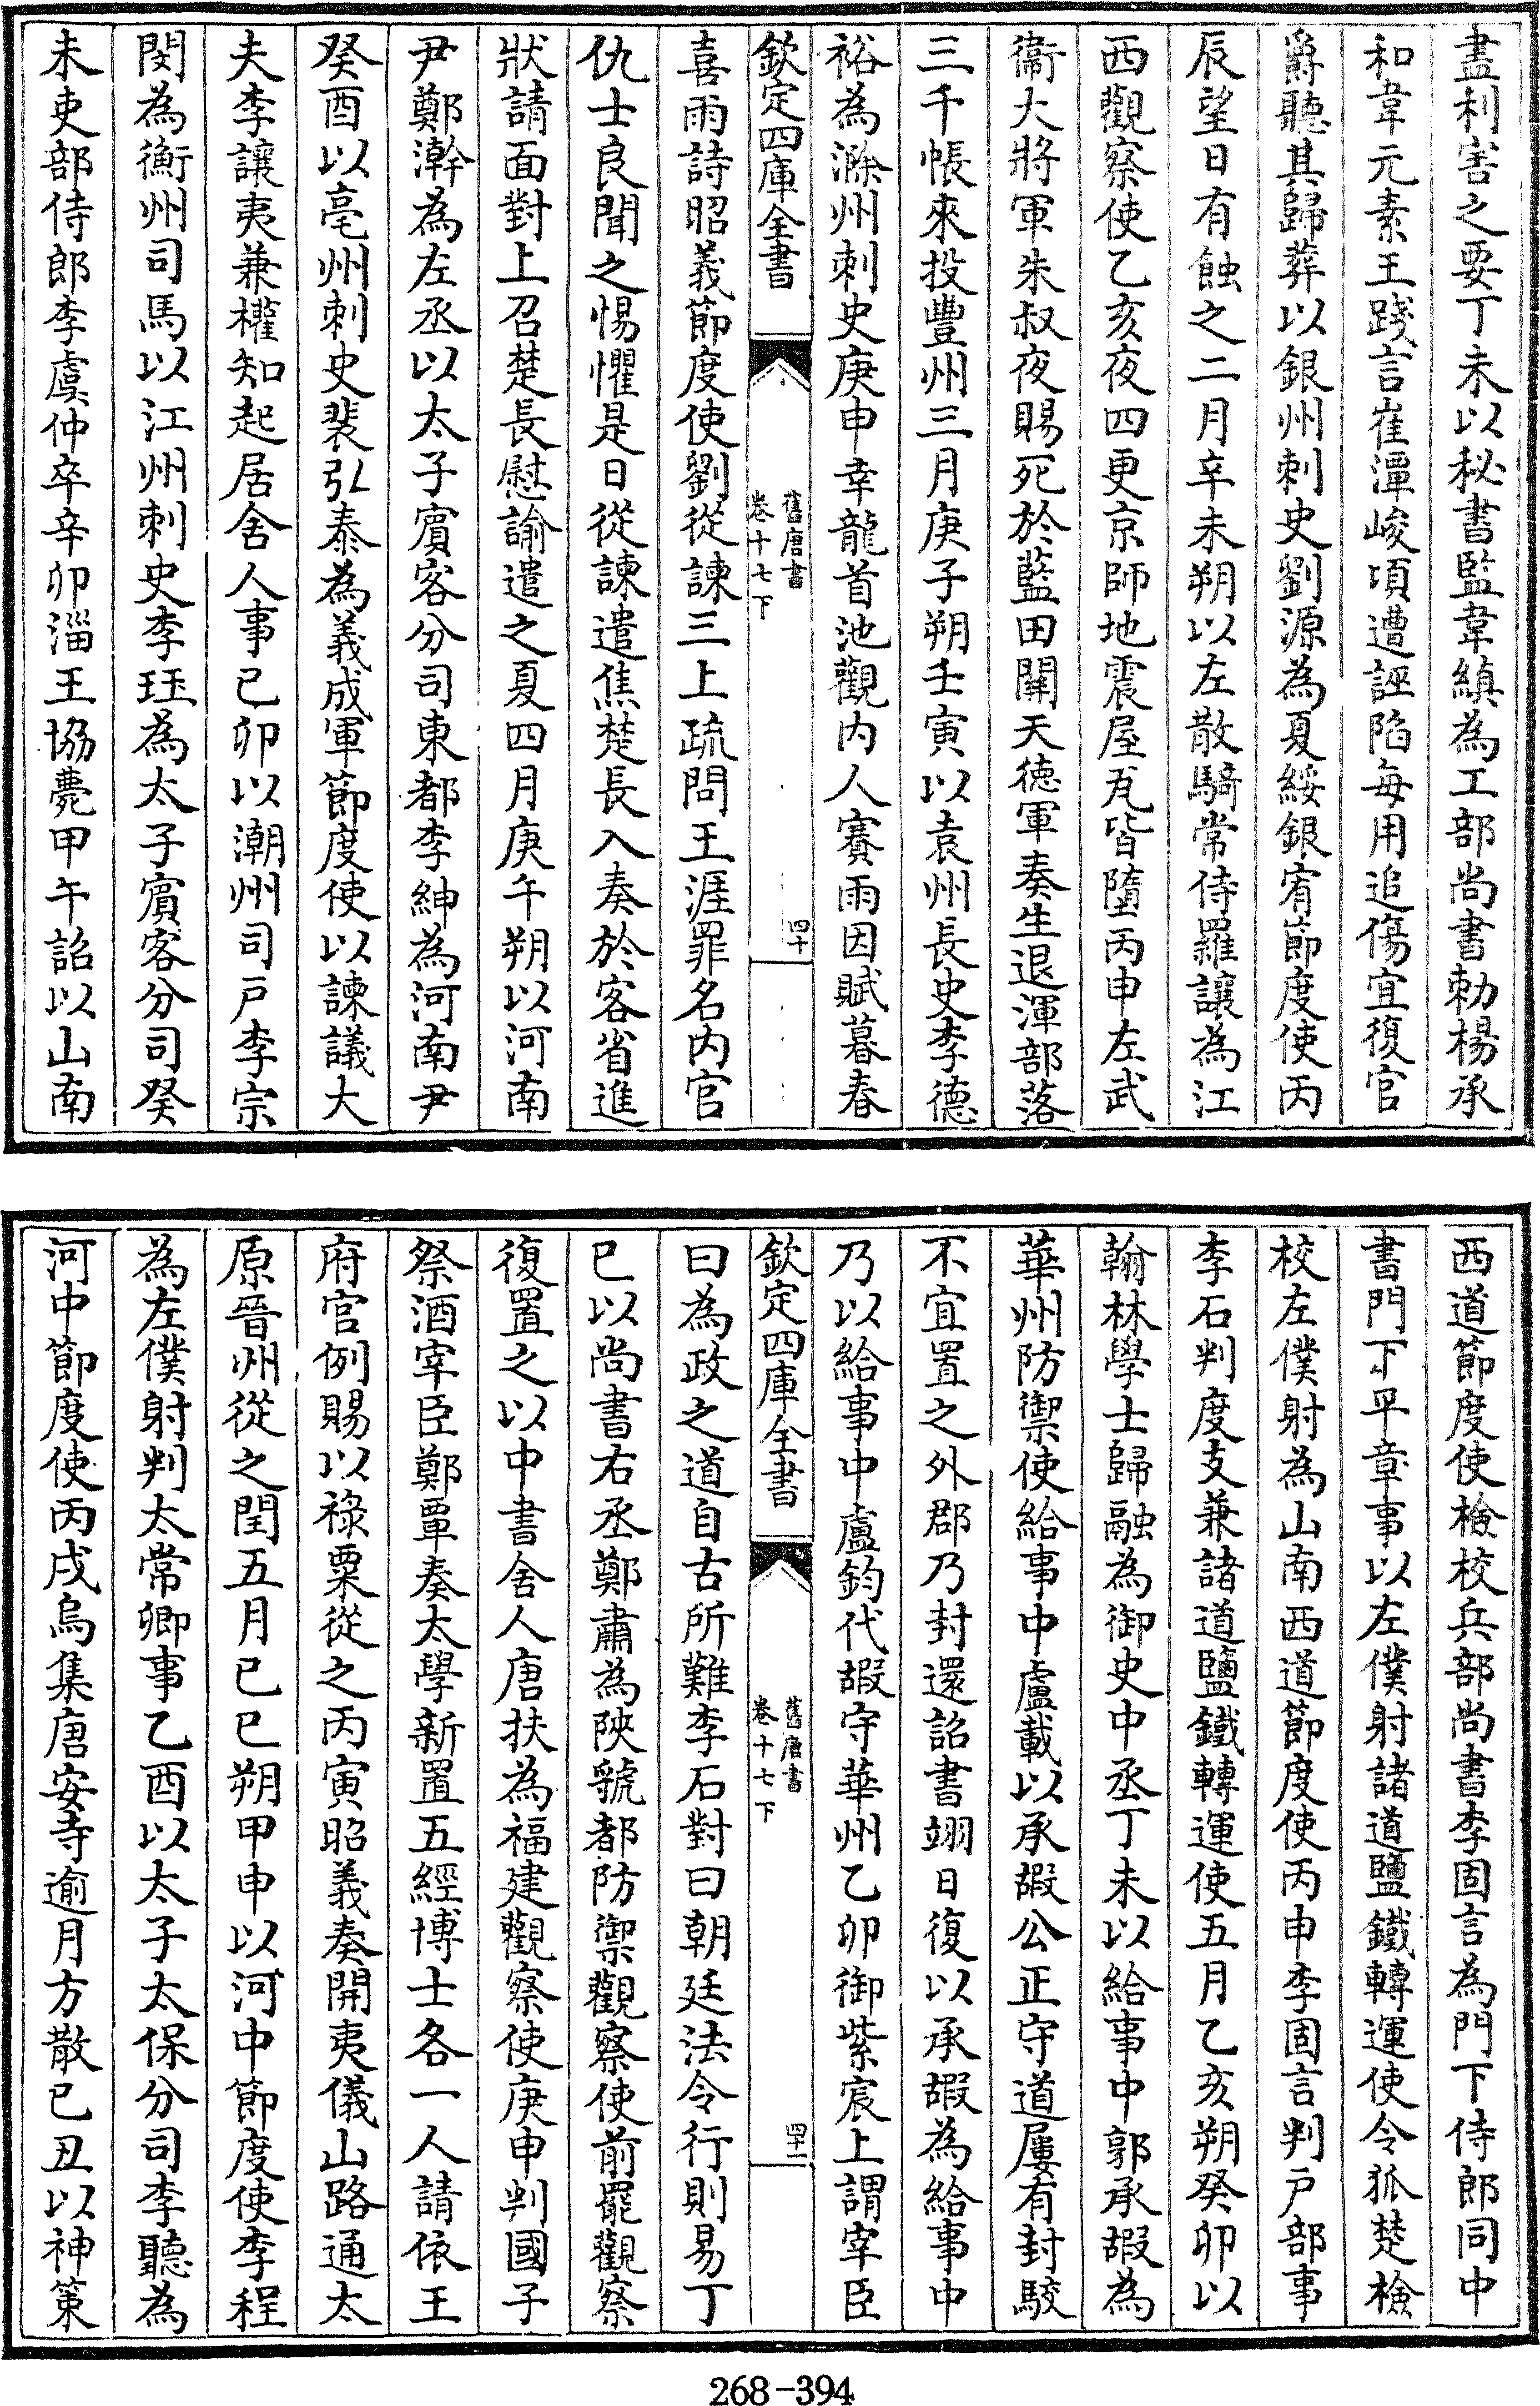 盡利害之要丁未以秘書監韋縝為工部尚書勅楊承
和韋元素王踐言崔潭峻頃遭誣陷每用追傷宜復官
爵聽其歸葬以銀州刺史劉源為夏綏銀宥節度使丙
辰望日有蝕之二月辛未朔以左散騎常侍羅讓為江
西觀察使乙亥夜四更京師地震屋瓦皆墮丙申左武
衞大將軍朱叔夜賜死於藍田關天德軍奏生退渾部落
三千帳來投豐州三月庚子朔壬寅以袁州長史李德
裕為滁州刺史庚申幸龍首池觀內人賽雨因賦暮春
欽定四庫全書
舊唐書
卷十七下
四十
喜雨詩昭義節度使劉從諫三上疏問王涯罪名内官
仇士良聞之惕懼是日從諫遣焦楚長入奏於客省進
狀請面對上召楚長慰諭遣之夏四月庚午朔以河南
尹鄭澣為左丞以太子賓客分司東都李紳為河南尹
癸酉以亳州刺史裴弘泰為義成軍節度使以諫議大
夫李讓夷兼權知起居舍人事己卯以潮州司戶李宗
閔為衡州司馬以江州刺史李珏為太子賓客分司癸
未吏部侍郎李虞仲卒辛卯淄王協薨甲午詔以山南
西道節度使檢校兵部尚書李固言為門下侍郎同中
書門下平章事以左僕射諸道鹽鐵轉運使令狐楚檢
校左僕射為山南西道節度使丙申李固言判戶部事
李石判度支兼諸道鹽鐵轉運使五月乙亥朔癸卯以
翰林學士歸融為御史中丞丁未以給事中郭承嘏為
華州防禦使給事中盧載以承嘏公正守道屢有封駮
不宜置之外郡乃封還詔書翊日復以承嘏為給事中
乃以給事中盧鈞代嘏守華州乙卯御紫宸上謂宰臣
欽定四庫全書
舊唐書
卷十七下
四十一
曰為政之道自古所難李石對曰朝廷法令行則易丁
已以尚書右丞鄭肅為陝虢都防禦觀察使前罷觀察
復置之以中書舍人唐扶為福建觀察使庚申判國子
祭酒宰臣鄭覃奏太學新置五經博士各一人請依王
府官例賜以祿粟從之丙寅昭義奏開夷儀山路通太
原晉州從之閏五月己巳朔甲申以河中節度使李程
為左僕射判太常卿事乙酉以太子太保分司李聽為
河中節度使丙戌烏集唐安寺逾月方散己丑以神策
268-394